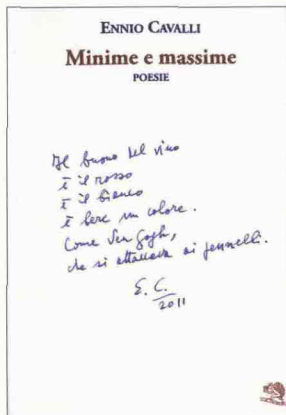 ENNIO CAVALLI
Minime e massime
POESIE
Il buono del vino
è il rosso
è il bianco
è bere un colore.
Come Van Gogh,
che si attaccava ai pennelli.
E. C.
2011